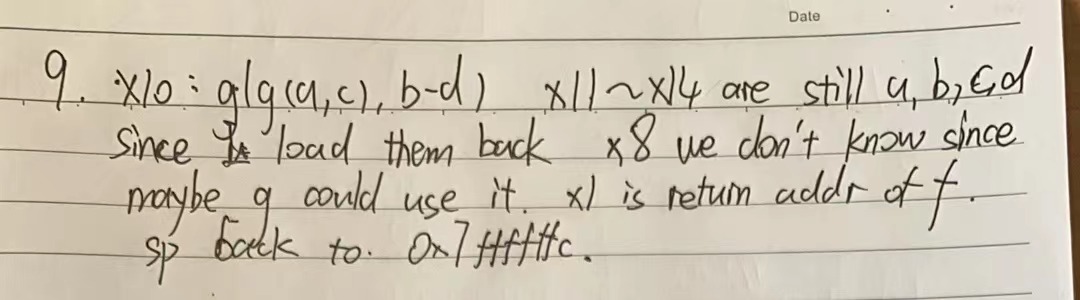 Date
9. x10 : g(g(a,c), b-d) x11~x14 are still a, b, c, d
since I load them back x8 we don't know since
maybe g could use it. x1 is return addr of f.
sp back to. 0x7ffffffc.